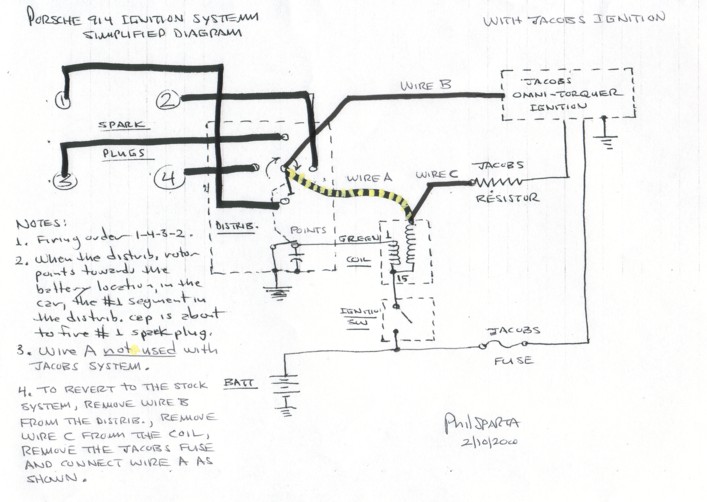 PORSCHE 914 IGNITION SYSTEMM
SIMPLIFIED DIAGRAM
WITH JACOBS IGNITION
WIRE B
JACOBS
OMNI-TORQUER
IGNITION
1
2
SPARK
PLUGS
3
4
WIRE A
WIRE C
JACOBS
RESISTOR
DISTRIB.
POINTS
GREEN
1
COIL
15
IGNITION
SW
JACOBS
FUSE
BATT
NOTES:
1. Firing order 1-4-3-2.
2. When the distrib. rotor
points towards the
battery location, in the
car, the #1 segment in
the distrib. cap is about
to fire #1 spark plug.
3. Wire A not used with
JACOBS SYSTEM.
4. TO REVERT TO THE STOCK
SYSTEM, REMOVE WIRE B
FROM THE DISTRIB., REMOVE
WIRE C FROM THE COIL,
REMOVE THE JACOBS FUSE
AND CONNECT WIRE A AS
SHOWN.
Phil SPARTA
2/10/2000